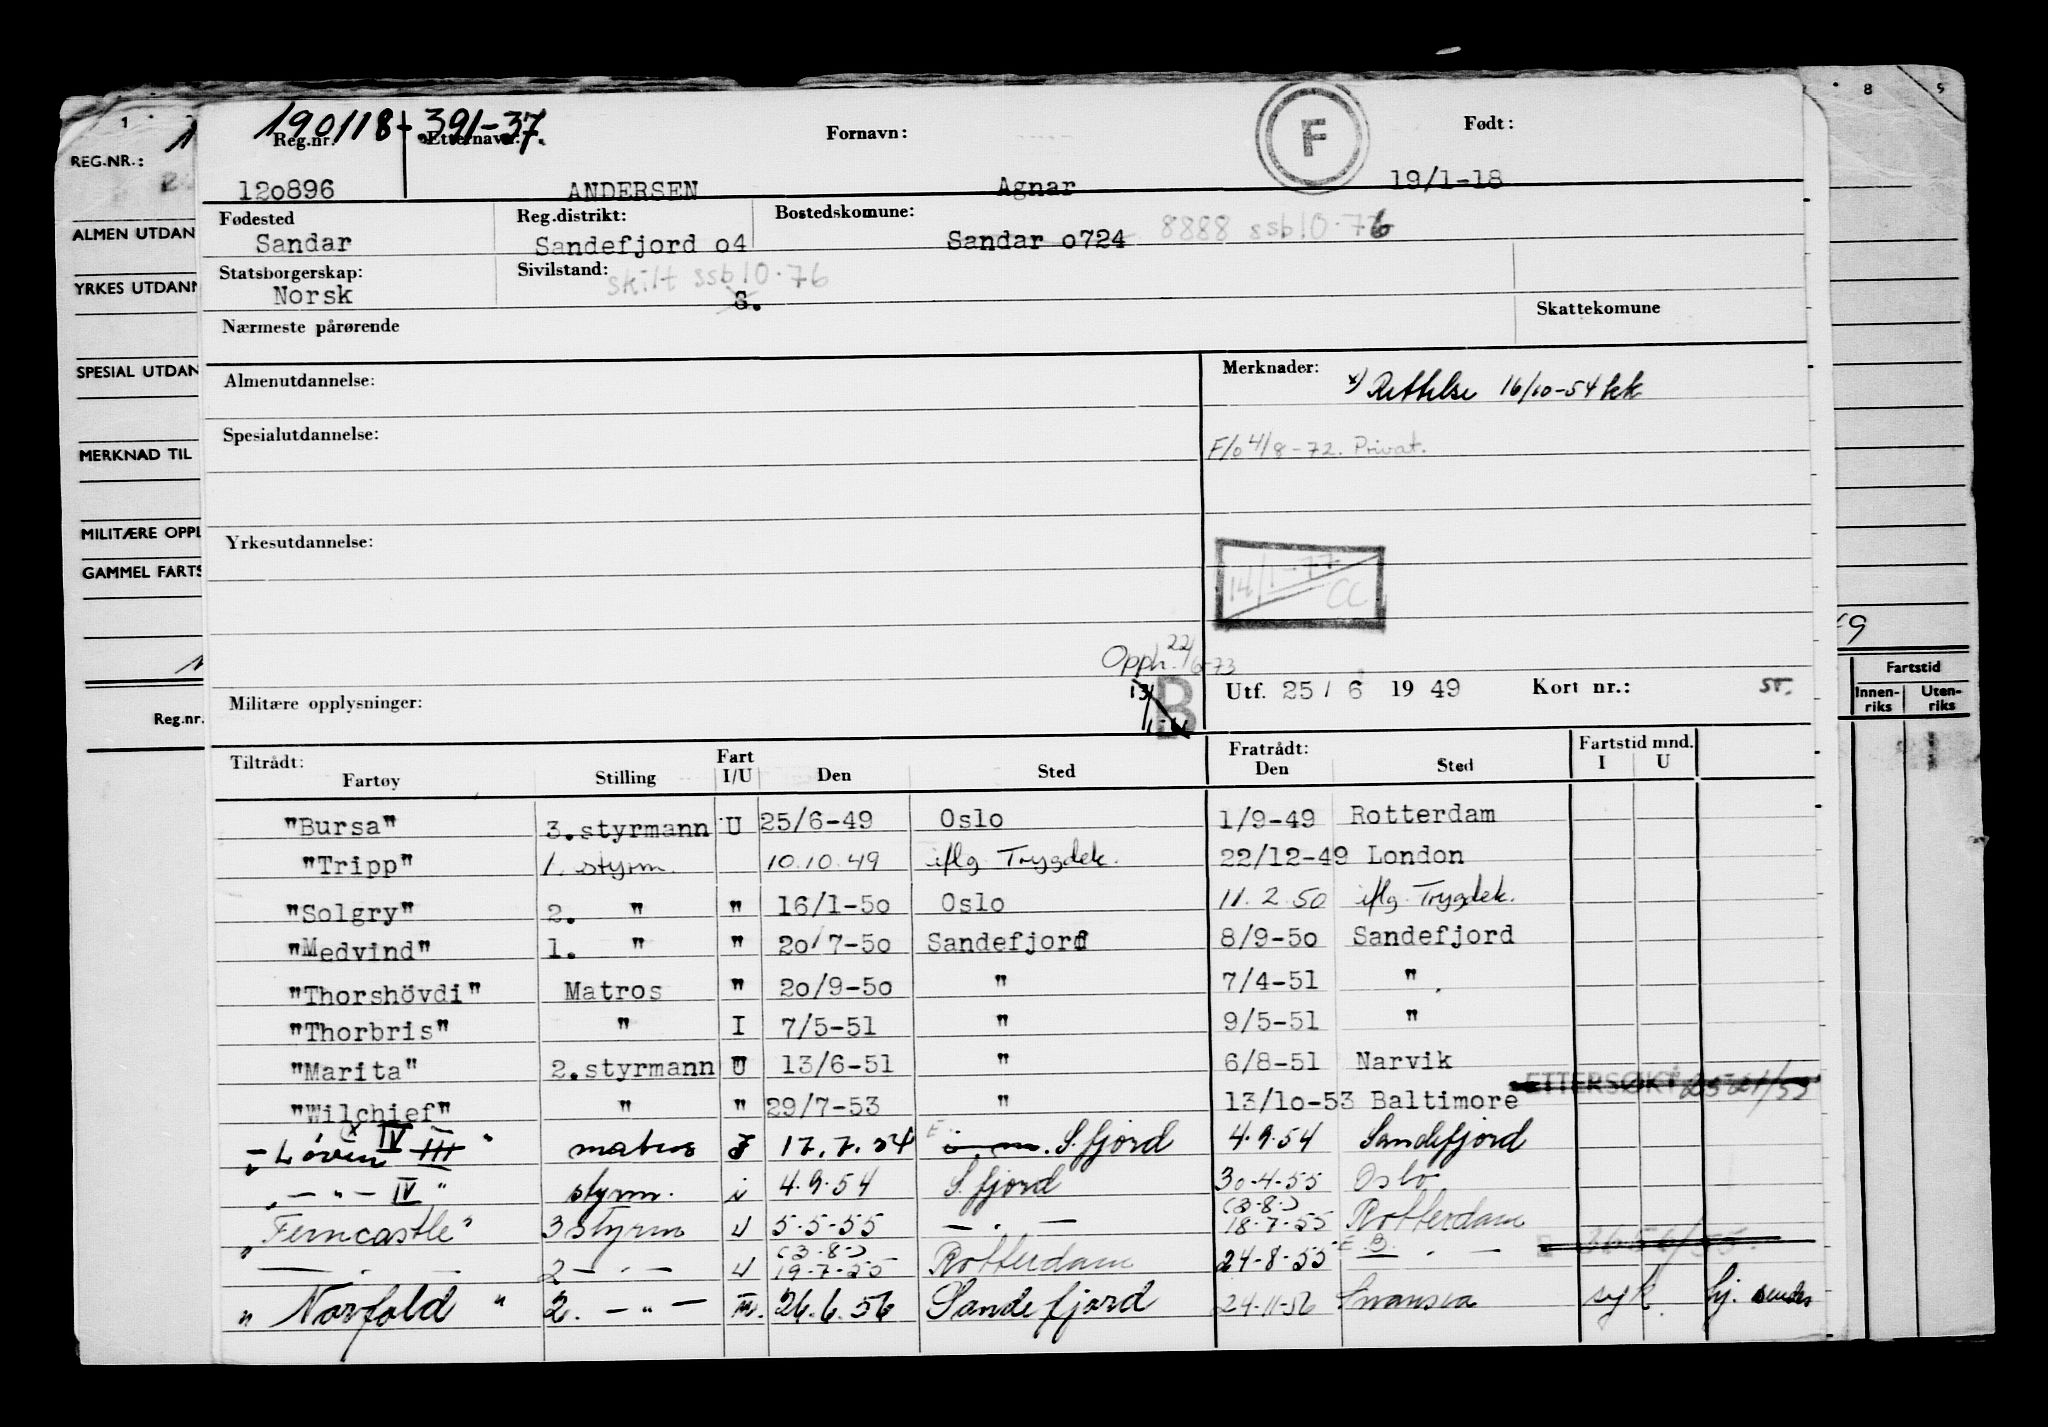 190118-391-37
Reg.nr. Etternavn: Fornavn: F Født:
120896 ANDERSEN Agnar 19/1-18
Fødested Reg.distrikt: Bostedskomune:
Sandar Sandefjord o4 Sandar o724 8888 ssb10.76
Statsborgerskap: Sivilstand: skilt ssb10.76
Norsk G.
Nærmeste pårørende Skattekomune
Almenutdannelse: Merknader: x) Rettelse 16/10-54 kk
Spesialutdannelse: F/o 4/8-72. Privat.
Yrkesutdannelse:
14/1-77 CC
Opph. 22/6-73
Militære opplysninger: B Utf. 25/6 1949 Kort nr.: ST.
Tiltrådt: Fart Fratrådt: Fartstid mnd.
Fartøy Stilling I/U Den Sted Den Sted I U
"Bursa" 3.styrmann U 25/6-49 Oslo 1/9-49 Rotterdam
"Tripp" 1. styrm. 10.10.49 iflg. Trygdek. 22/12-49 London
"Solgry" 2. " " 16/1-50 Oslo 11.2.50 iflg. Trygdek.
"Medvind" 1. " " 20/7-50 Sandefjord 8/9-50 Sandefjord
"Thorshövdi" Matros " 20/9-50 " 7/4-51 "
"Thorbris" " I 7/5-51 " 9/5-51 "
"Marita" 2.styrmann U 13/6-51 " 6/8-51 Narvik
ETTERSØKT
"Wilchief" " " 29/7-53 " 13/10-53 Baltimore
"Løven x IV III" matros I 17.7.54 S.fjord 4.9.54 Sandefjord
" — " — IV " styrm. i 4.9.54 S.fjord 30-4-55 Oslo
"Ferncastle" 3 styrm U 5-5-55 — . — (3-8-) 18-7-55 Rotterdam
— . — 2 — . — U (3-8-) 19-7-55 Rotterdam 24-8-55 E.B. — . — 3656/55
" Norfold " 2. — " — 26.6.56 Sandefjord 24-11-56 Swansea syk hj. sendt
1 8 9
REG.NR.:
ALMEN UTDAN
YRKES UTDANN
SPESIAL UTDAN
MERKNAD TIL
MILITÆRE OPPL
GAMMEL FARTS
Reg.nr.
Fartstid
Innen-riks Uten-riks